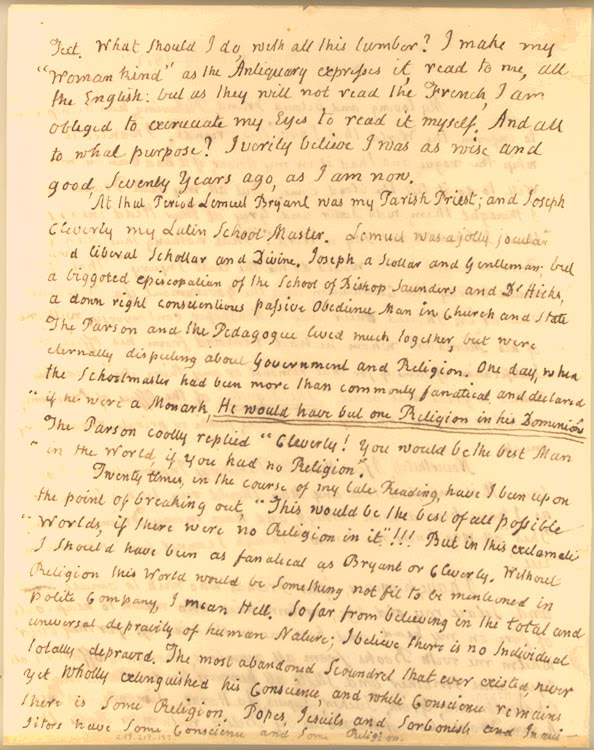 Tect. What should I do, with all this lumber? I make my
"Woman kind" as the Antiquary expresses it, read to me, all
the English: but as they will not read the French, I am
obliged to excruciate my Eyes to read it myself. And all
to what purpose? I verily believe I was as wise and
good, Seventy Years ago, as I am now.
At that Period Lemuel Bryant was my Parish Priest; and Joseph
Cleverly my Latin School Master. Lemuel was a jolly jocular
nd liberal Schollar and Divine. Joseph a Scollar and Gentleman; but
a biggoted episcopalian of the School of Bishop Saunders and Dr Hicks,
a down right conscientious passive Obedience Man in Church and State
The Parson and the Pedagogue lived much together, but were
eternally disputing about Government and Religion. One day, when
the Schoolmaster had been more than commonly fanatical, and declared
" if he were a Monark, He would have but one Religion in his Dominions
The Parson coolly replied "Cleverly! You would be the best Man
" in the World, if you had no Religion".
Twenty times, in the course of my late Reading, have I been upon
the point of breaking out, "This would be the best of all possible
"Worlds, if there were no Religion in it"!!! But in this exclamati
I should have been as fanatical as Bryant or Cleverly. Without
Religion this World would be Something not fit to be mentioned in
polite Company, I mean Hell. So far from believing in the total and
universal depravity of human Nature; I believe there is no Individual
totally depraved. The most abandoned Scoundrel that ever existed, never
yet Wholly extinguished his Conscience, and while Conscience remains
there is Some Religion. Popes, Jesuits and Sorbonists and Inqui-
sitors have Some Conscience and Some Religion.